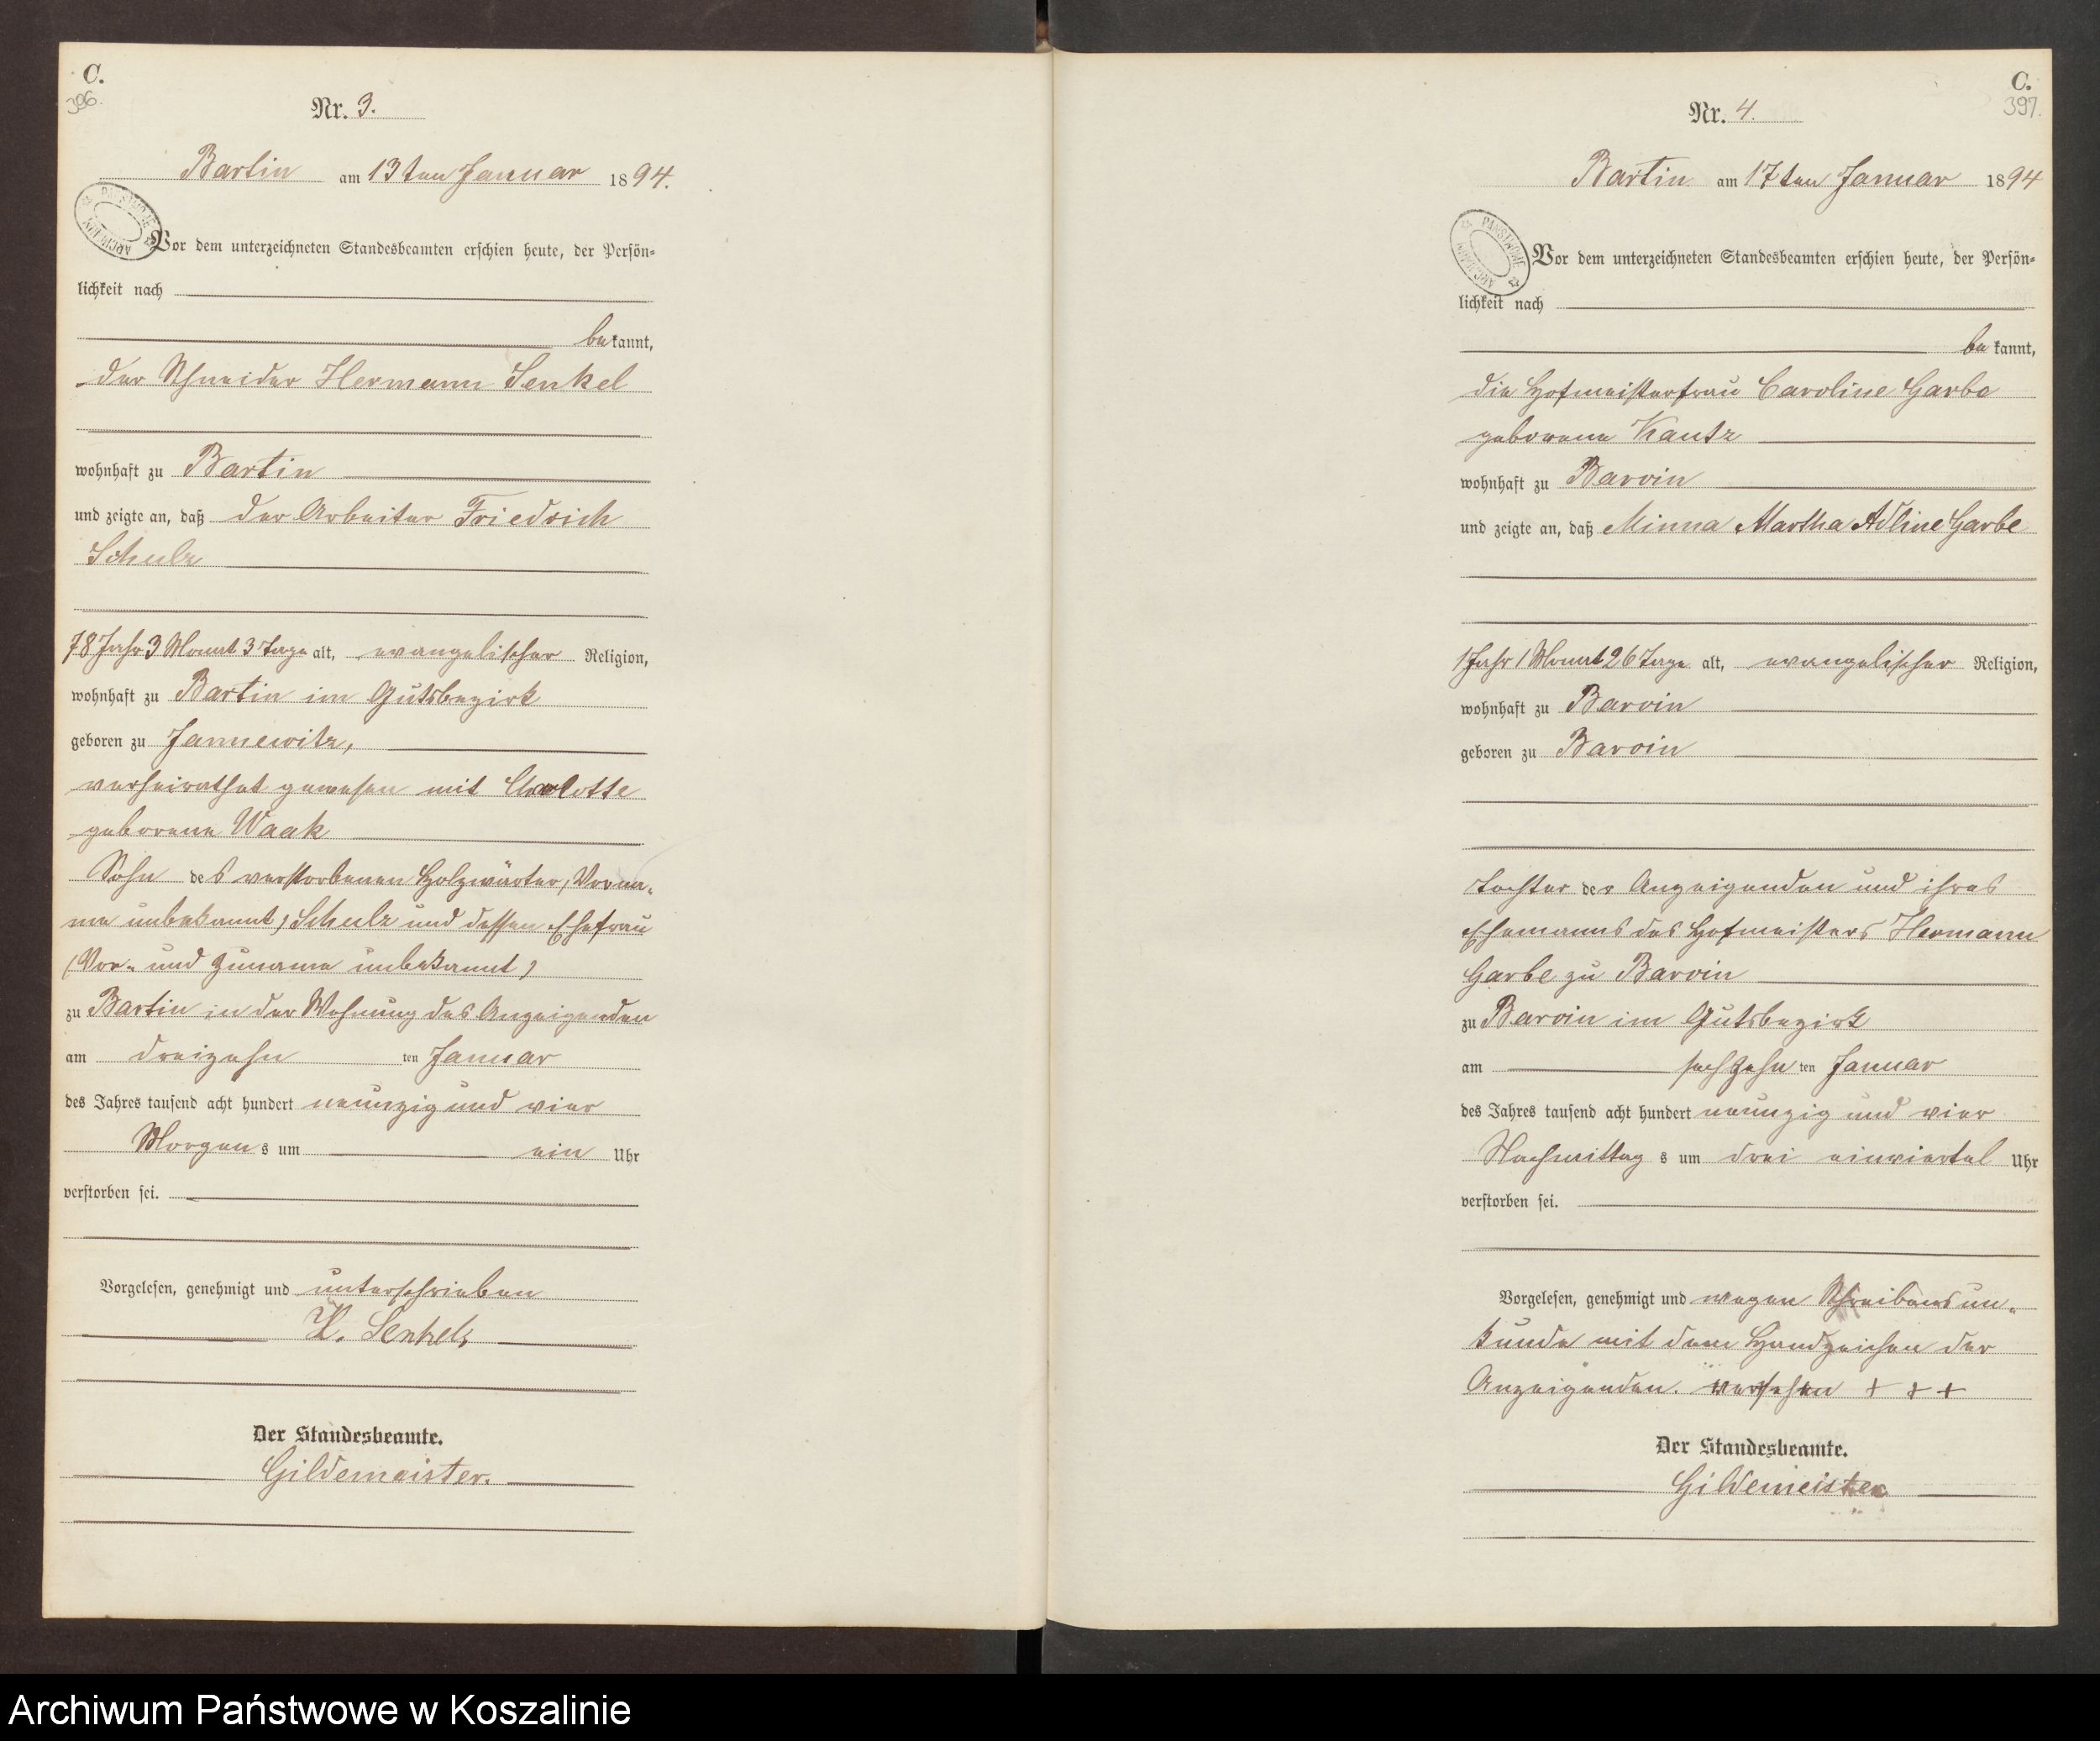 C.
396.
Nr. 3.
Bartin am 13ten Januar 1894.
PAŃSTWOWE ARCHIWUM
Vor dem unterzeichneten Standesbeamten erschien heute, der Persön-
lichkeit nach
bekannt,
der Schneider Hermann Senkel
wohnhaft zu Bartin
und zeigte an, daß der Arbeiter Friedrich
Schulz
78 Jahr 3 Monat 3 Tage alt, evangelischer Religion,
wohnhaft zu Bartin im Gutsbezirk
geboren zu Jannewitz,
verheirathet gewesen mit Charlotte
geborene Waak
Sohn des verstorbenen Holzwärter, (Vorna-
me unbekannt) Schulz und dessen Ehefrau
(Vor- und Zuname unbekannt)
zu Bartin in der Wohnung des Anzeigenden
am dreizehn ten Januar
des Jahres tausend acht hundert neunzig und vier
Morgens um ein Uhr
verstorben sei.
Vorgelesen, genehmigt und unterschrieben
H. Senkel
Der Standesbeamte.
Gildemeister.
C.
397.
Nr. 4.
Bartin am 17ten Januar 1894
PAŃSTWOWE ARCHIWUM
Vor dem unterzeichneten Standesbeamten erschien heute, der Persön-
lichkeit nach
bekannt,
die Hofmeisterfrau Caroline Garbe
geborene Kautz
wohnhaft zu Barvin
und zeigte an, daß Minna Martha Adline Garbe
1 Jahr 1 Monat 26 Tage alt, evangelischer Religion,
wohnhaft zu Barvin
geboren zu Barvin
Tochter der Anzeigenden und ihres
Ehemanns des Hofmeisters Hermann
Garbe zu Barvin
zu Barvin im Gutsbezirk
am sechzehn ten Januar
des Jahres tausend acht hundert neunzig und vier
Nachmittags um drei einviertel Uhr
verstorben sei.
Vorgelesen, genehmigt und wegen Schreibensun-
kunde mit dem Handzeichen der
Anzeigenden. versehen + + +
Der Standesbeamte.
Gildemeister
Archiwum Państwowe w Koszalinie